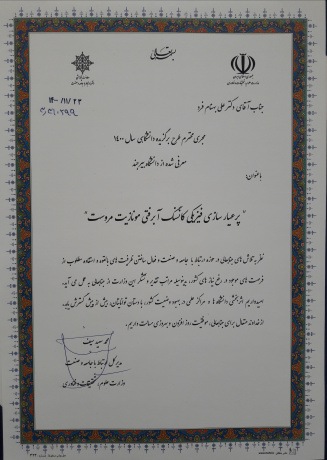 بسمه تعالی
۱۴۰۰/۱۱/۲۳
جناب آقای دکتر علی بهنام فرد
مجری محترم طرح برگزیده دانشگاهی سال ۱۴۰۰
معرفی شده از دانشگاه بیرجند
با عنوان:
"پرعیار سازی فیزیکی کانسنگ آبرفتی مونازیت مروست"
نظر به تلاش های جنابعالی در حوزه ارتباط با جامعه و صنعت و فعال ساختن ظرفیت های بالقوه و استفاده مطلوب از
فرصت های موجود در رفع نیاز های کشور، بدینوسیله مراتب تقدیر و تشکر این وزارت از جنابعالی به عمل می آید.
امید داریم اثربخشی دانشگاه ها و مراکز علمی در بهبود وضعیت کشور، با دستان توانایتان، بیش از پیش گسترش یابد.
از خداوند متعال برای جنابعالی، موفقیت روز افزون و بهروزی مسألت داریم.
محمد سعید سیف
مدیر کل ارتباط با جامعه و صنعت
وزارت علوم، تحقیقات و فناوری